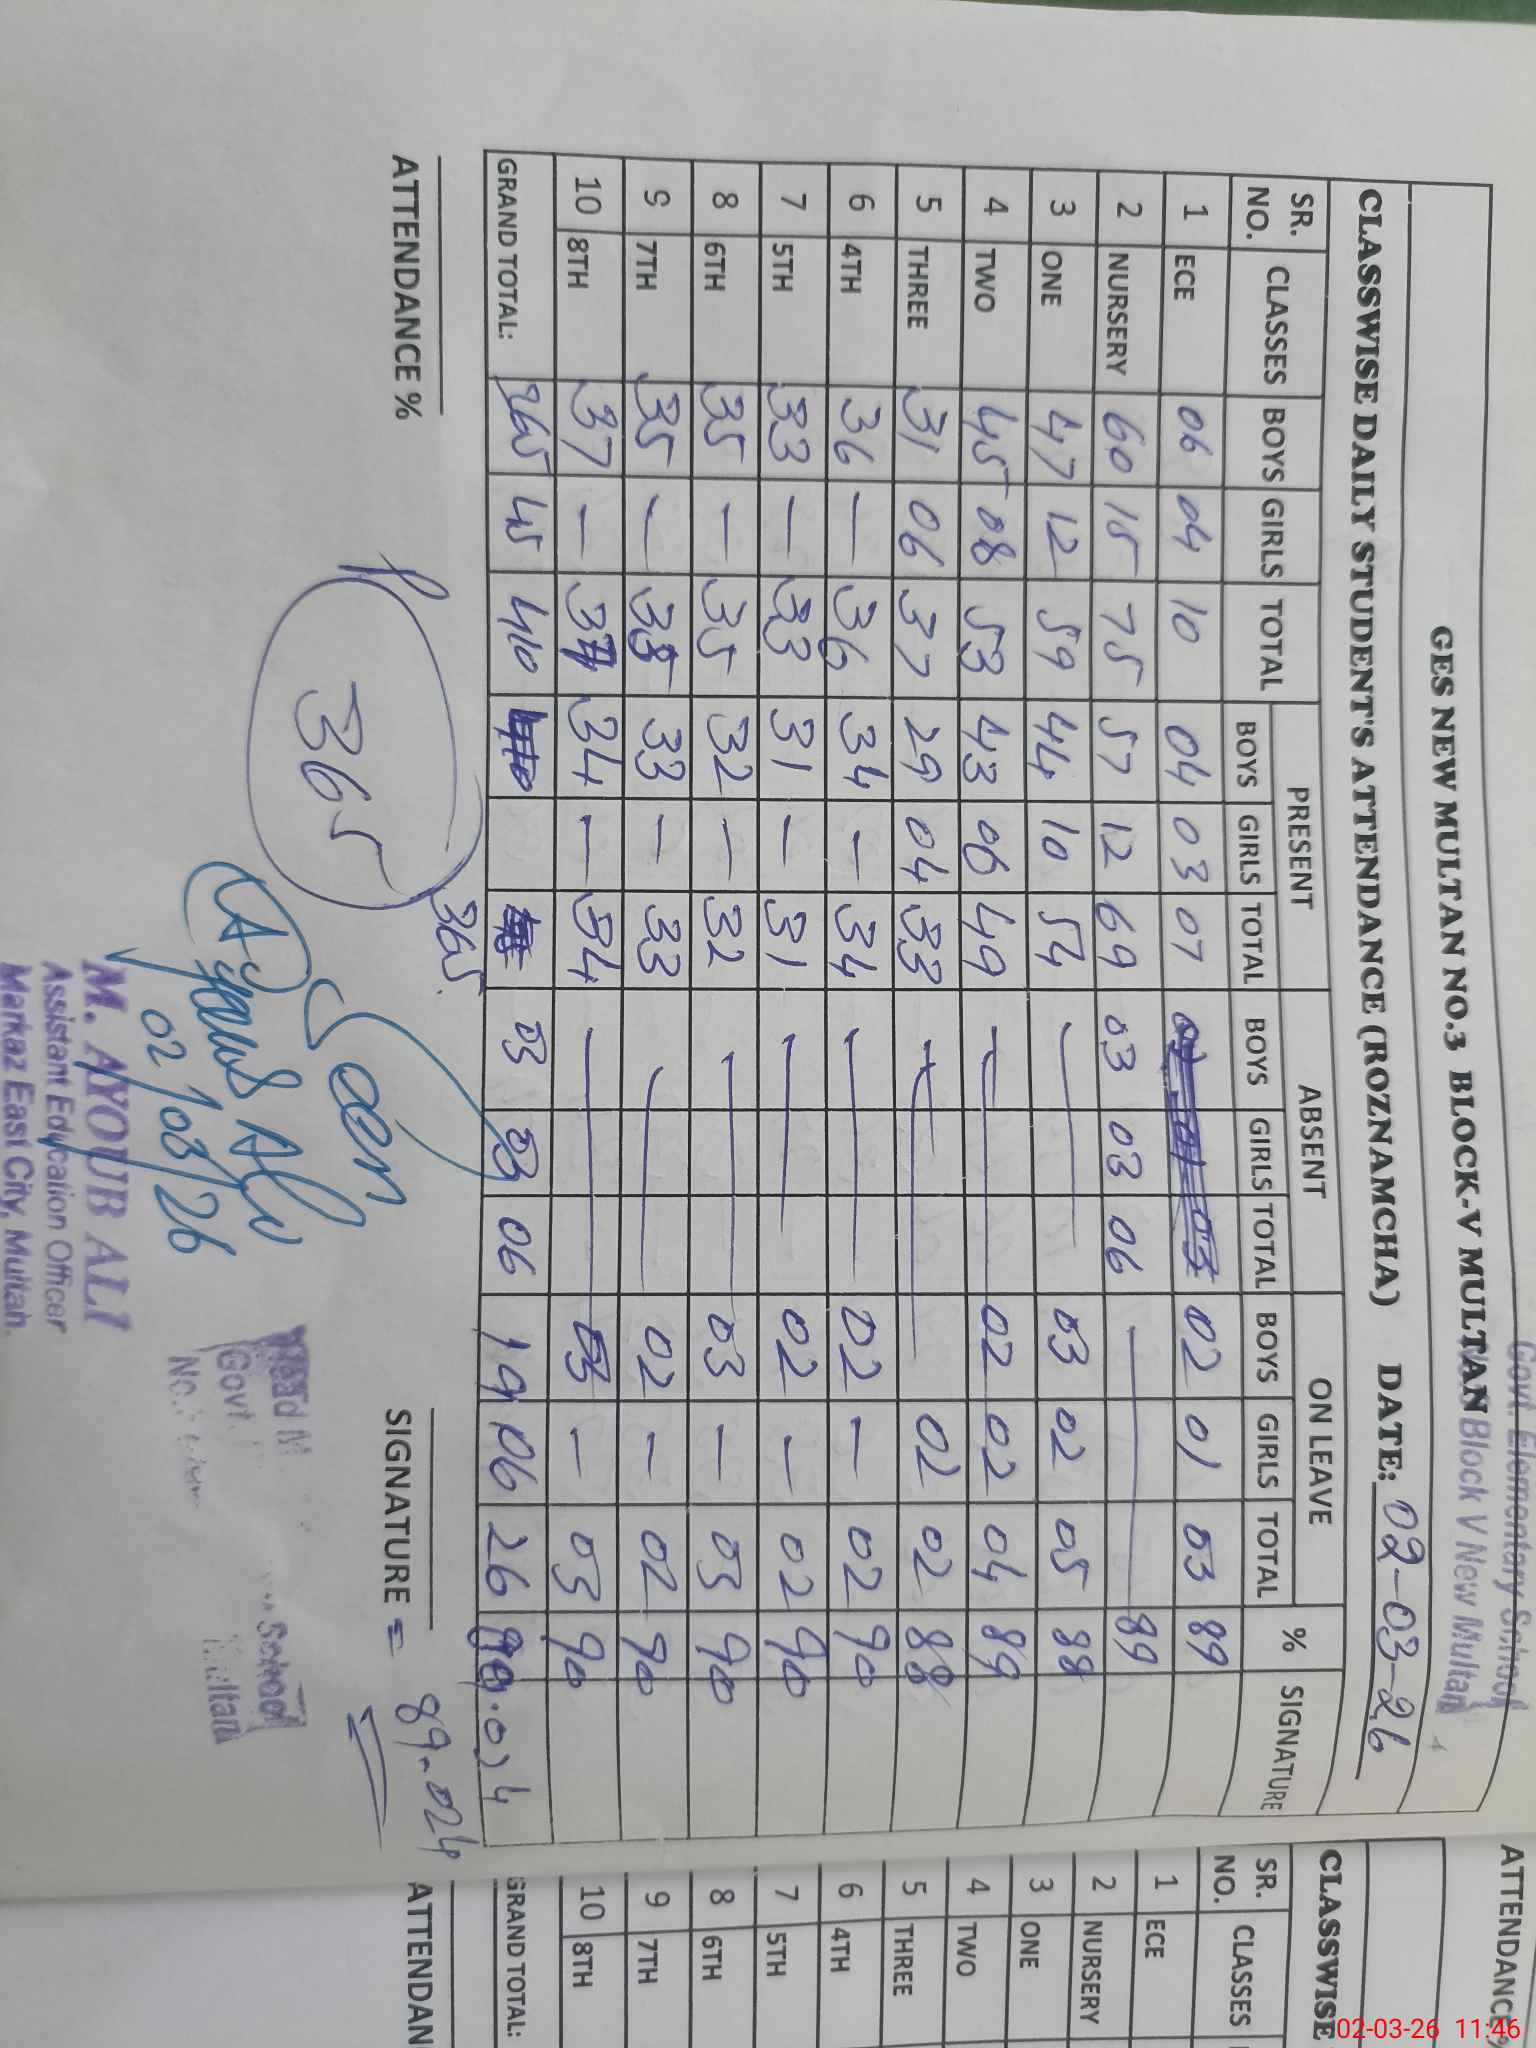 Govt. Elementary School
GES NEW MULTAN NO.3 BLOCK-V MULTAN Block V New Multan
CLASSWISE DAILY STUDENT'S ATTENDANCE (ROZNAMCHA) DATE: 02-03-26
SR. NO. CLASSES BOYS GIRLS TOTAL PRESENT ABSENT ON LEAVE % SIGNATURE
BOYS GIRLS TOTAL BOYS GIRLS TOTAL BOYS GIRLS TOTAL
1 ECE 06 04 10 04 03 07 02 01 03 89
2 NURSERY 60 15 75 57 12 69 03 03 06 — 89
3 ONE 47 12 59 44 10 54 — 03 02 05 88
4 TWO 45 08 53 43 06 49 — 02 02 04 89
5 THREE 31 06 37 29 04 33 — 02 02 88
6 4TH 36 — 36 34 — 34 — 02 — 02 90
7 5TH 33 — 33 31 — 31 — 02 — 02 90
8 6TH 35 — 35 32 — 32 — 03 — 03 90
9 7TH 35 — 35 33 — 33 — 02 — 02 90
10 8TH 37 — 37 34 — 34 — 03 — 03 90
GRAND TOTAL: 365 45 410 03 03 06 19 06 26
365
ATTENDANCE % SIGNATURE = 89.024
365
Seen
02/03/26
M. AYOUB ALI
Assistant Education Officer
Markaz East City, Multan.
Head
Govt. School
No.
ATTENDANCE %
CLASSWISE
SR. NO. CLASSES
1 ECE
2 NURSERY
3 ONE
4 TWO
5 THREE
6 4TH
7 5TH
8 6TH
9 7TH
10 8TH
GRAND TOTAL:
ATTENDAN
02-03-26 11:46